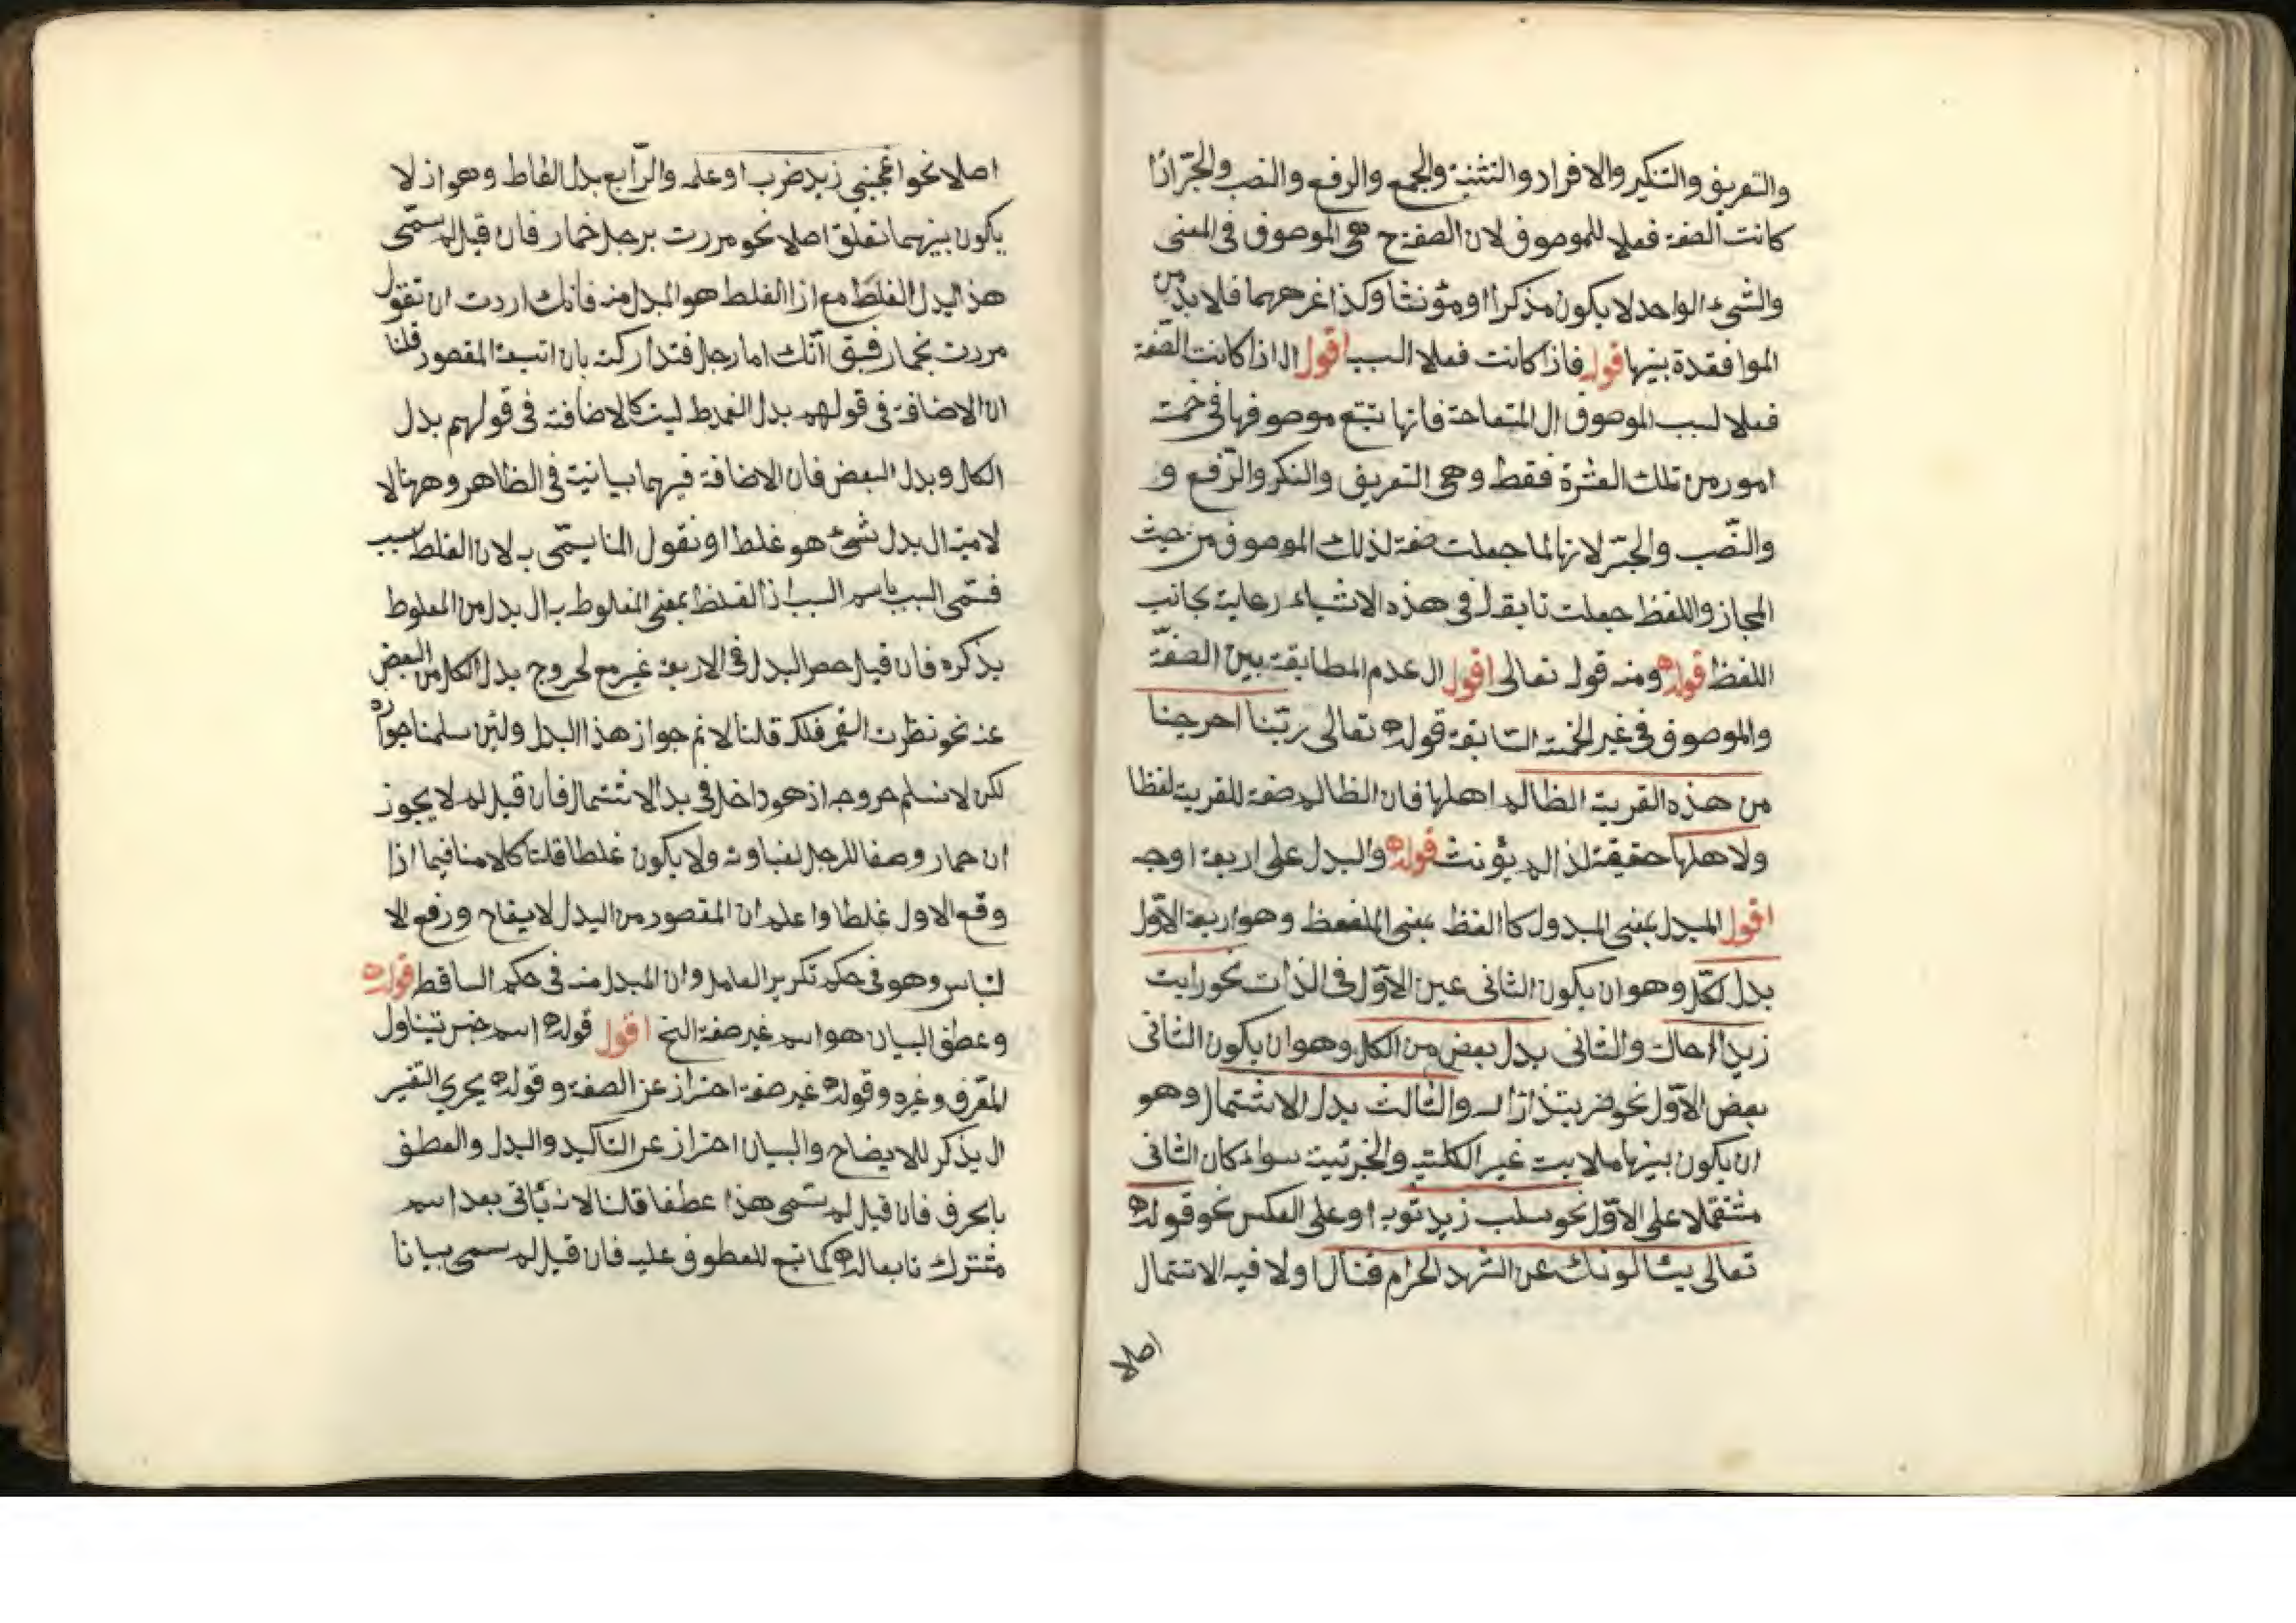 والتعريف والتنكير والافراد والتثنية والجمع والرفع والنصب والجرّ اذا
كانت الصفة فعلا للموصوف لان الصفة ح هى الموصوف فى المعنى
والشىء الواحد لا يكون مذكرا او مؤنثا وكذا غرهما فلا بد من
الموافقدة بينها قوله فاذا كانت فعلا السبب اقول ال اذا كانت الصّفة
فعلا لسبب الموصوف ال المتعلقة فانها تتبع موصوفها فى خمسة
امور من تلك العشرة فقط وهى التعريف والنكر والرّفع و
والنّصب والجرّ لانها لما جعلت صفة لذلك الموصوف من حيث
المجاز واللفظ جعلت تابعة له فى هذه الاشياء رعاية بجانب
اللفظ قوله ومنه قوله تعالى اقول ال عدم المطابقة بين الصفّة
والموصوف فى غير الخمسة السّابقة قوله تعالى ربّنا اخرجنا
من هذه القرية الظالم اهلها فان الظالم صفة للقرية لفظا
ولاهلها حقيقة لذا لم يؤنث قوله والبدل على اربعة اوجه
اقول المبدل بمعنى المبدول كاالفظ بمعنى الملفعظ وهو اربعة الاوّل
بدل لكلّ وهو ان يكون الثانى عين الاوّل فى الذات نحو رايت
زيدا اخاك والثانى بدل بعض من الكل وهو ان يكون الثانى
بعض الاوّل نحو ضربت زيدا راسه والثالث بدل الاشتمال وهو
ان يكون بينهما ملابست غير الكلّيّة والجزئيت سواء كان الثانى
مشتملا على الاوّل نحو سلب زيد ثوبه او على العكس نحو قوله
تعالى يسألونك عن الشهر الحرام قتال اولا فيه الاشتمال
اصلا
اصلا نحو اعجبنى زيد ضربه او علمه والرّابع بدل الغلط وهو ان لا
يكون بينهما تعلق اصلا نحو مررت برجل حمار فان قيل لم سمّى
هذا بدل الغلط مع ان الغلط هو المبدل منه فانك اردت ان تقول
مررت بحمار فسبق انّك اما رجل فتداركت بان اتبعته المقصود قلنا
ان الاضافة فى قولهم بدل الغلط ليست كالاضافة فى قولهم بدل
الكل وبدل البعض فان الاضافة فيهما بيانية فى الظاهر وههنا لا
لامية ال بدل شىء هو غلط او نقول انما يسمّى به لان الغلط سبب
فسمّى السبب باسم السبب اذ الغلط بمعنى المغلوط به ال بدل من المغلوط
بذكره فان قيل حصر البدل فى الاربعة غير مع لخروج بدل الكل من البعض
عنه نحو نظرت القمر فلكه قلنا لا نم جواز هذا البدل ولئن سلمنا جوازه
لكن لا نسلم خروجه اذ هو داخل فى بدل الاشتمال فان قيل لم لا يجوز
ان حمار وصفا للرجل لغباوته ولا يكون غلطا قلنا كلامنا فيما اذا
وقع الاول غلطا واعلم ان المقصود من البدل لايضاح ورفع الا
لتباس وهو فى حكم تكرير العامل وان المبدل منه فى حكم الساقط قوله
وعطف البيان هو اسم غير صفة الخ اقول قوله اسم جنس تيناول
المعّرف وغيره وقوله غير صفة احتراز عن الصفة وقوله يجرى التفسير
ال يذكر للايضاح والبيان احتراز عن التاكيد والبدل والعطف
بالحرف فان قيل لم تسمى هذا عطفا قلنا لانه ياتى بعد اسم
مشترك تابعا له كما تبع للمعطوف عليه فان قيل لم سمى بيانا